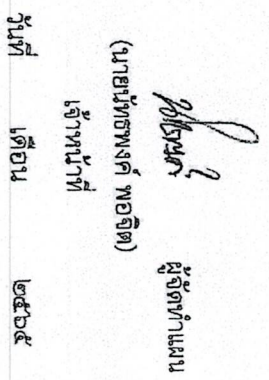 ผู้จัดทำแผน
(นายนัทธพงศ์ พอจิต)
เจ้าหน้าที่
วันที่ เดือน ๒๕๖๕